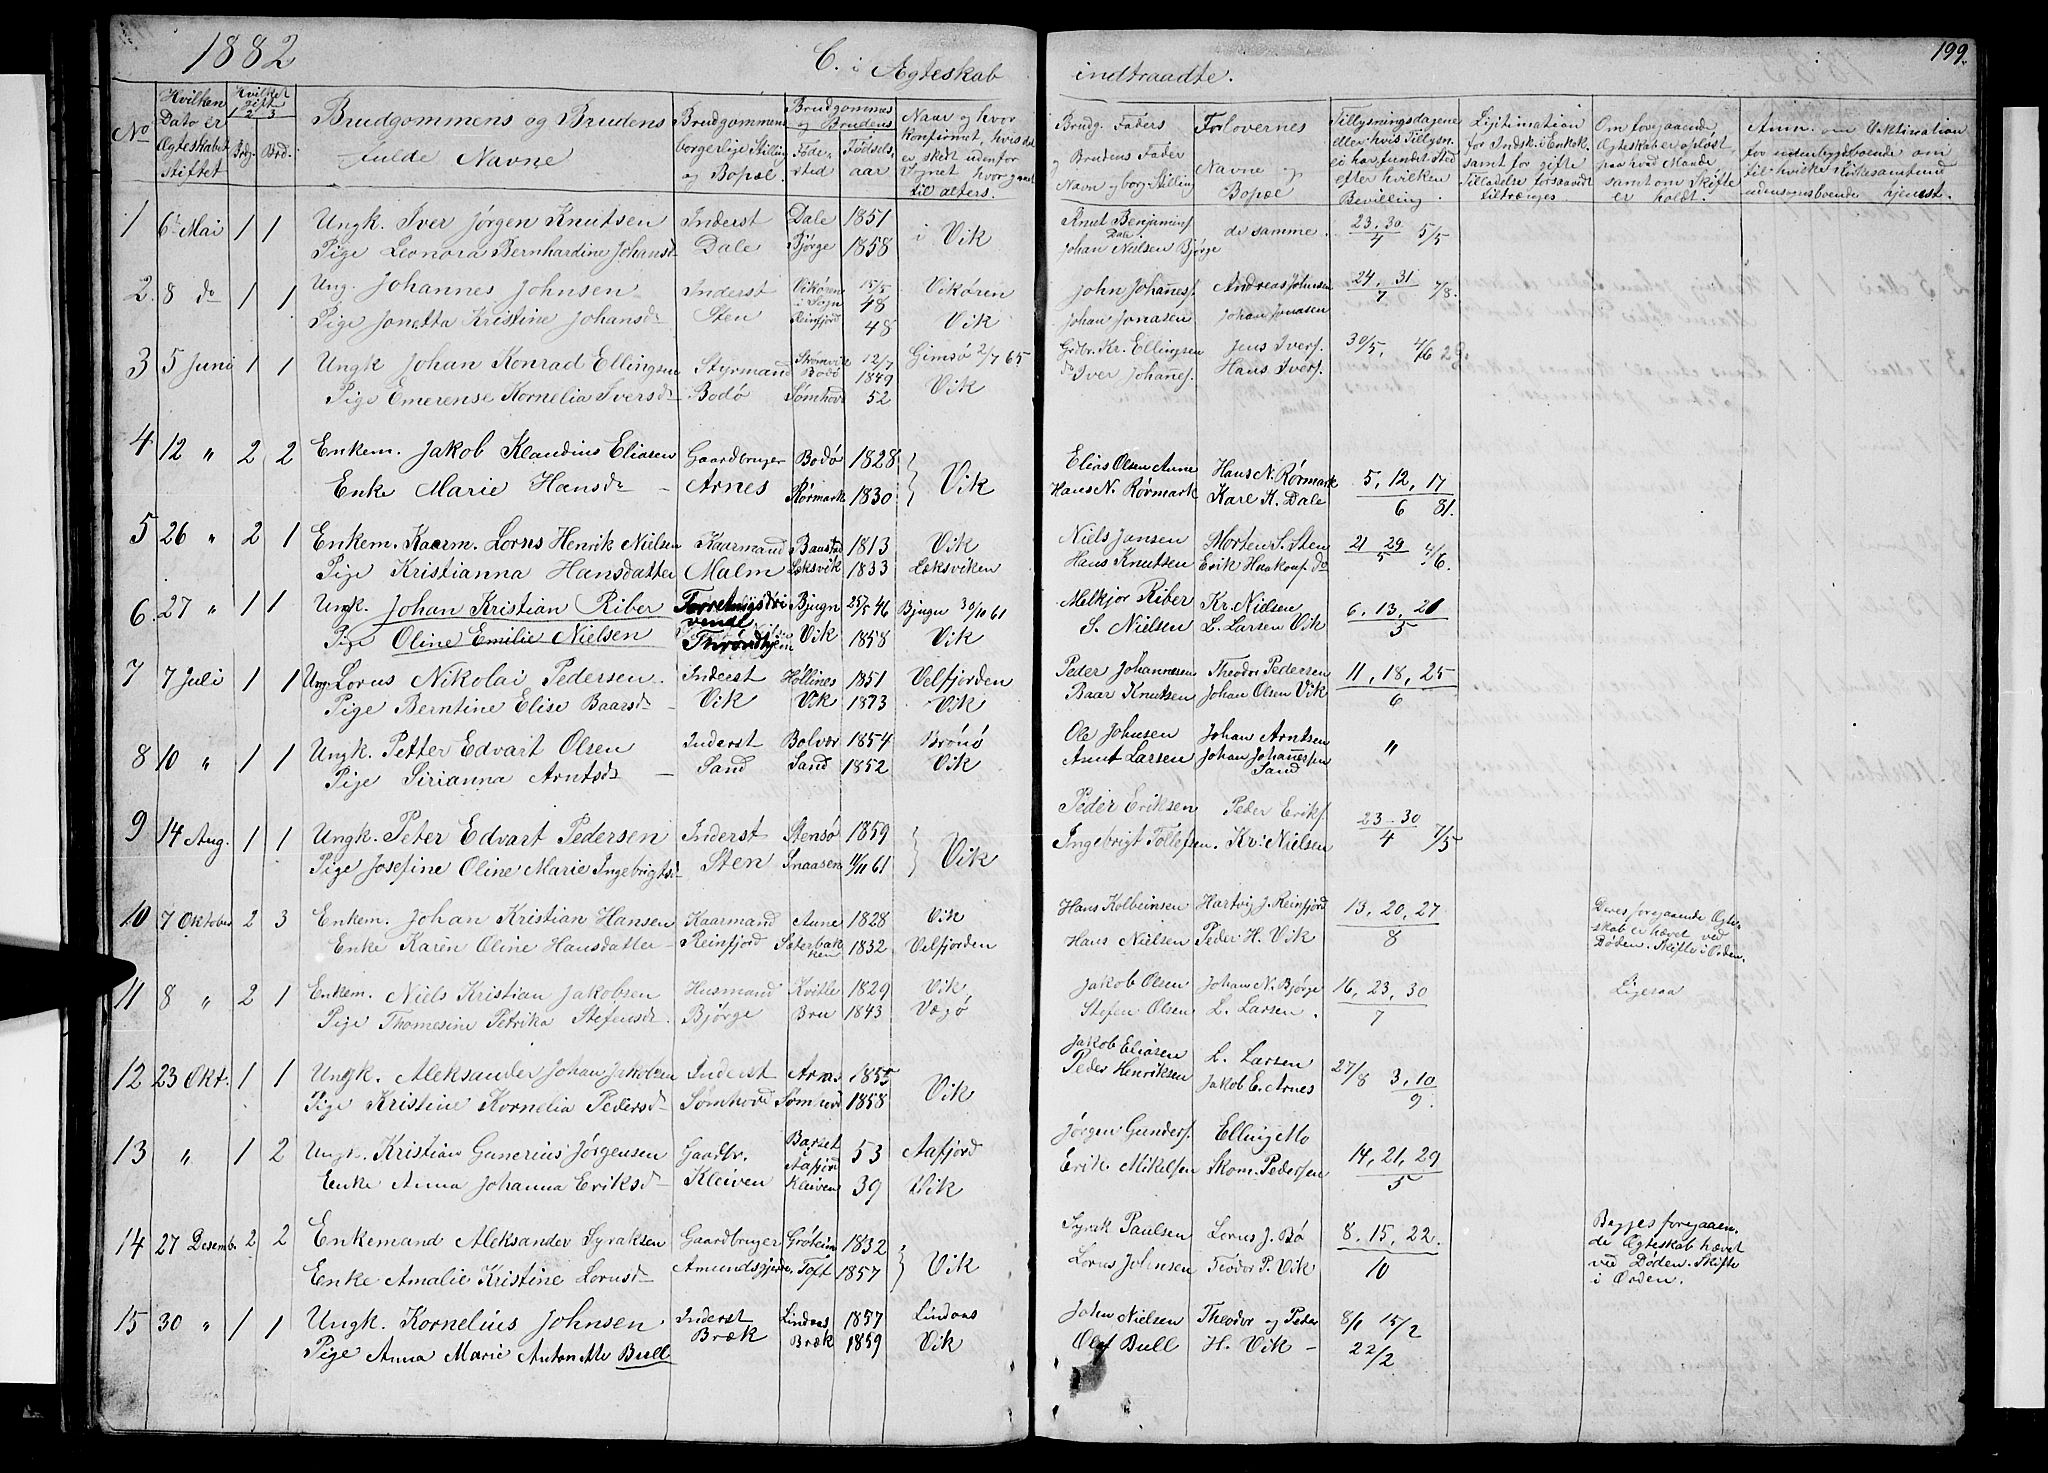 1882
C. i Ægteskab
indtraadte.
199.
No
Hvilken Dato er Ægteskabet stiftet
Hvilket gift 1 2 3
Brudgommens og Brudens
fulde Navne
Brudgommens borgerlige Stilling og Bopæl.
Brudgommens og Brudens
Fødested
Fødselsaar
Naar og hvor Konfirmet, hvis det er skedt udenfor Sognet hvor gaaet til alters.
Brudg. Faders og Brudens Fader Navn og borg. Stilling
Forlovernes Navne og Bopæl
Tillysningsdagene eller hvis Tillysn. ei har fundet sted efter hvilken Bevilling
Om foregaaende Ægteskab er opløst, paa hvad Maade samt om Skifte er holdt.
1 6te Mai 1 1 Ungk. Iver Jørgen Knutsen Inderst Dale 1851 i Vik
Pige Leonora Bernhardine Johansd. Dale Bjørge 1858
Arnt Benjamins. Dale de samme. 23, 30/4 5/5
Johan Nielsen Bjørge
2. 8 do 1 1 Ung. Johannes Johnsen Inderst Vikøren i Sogn 15/5 48 Vikøren
Pige Jonetta Kristine Johansd. Sten Reinfjord 48 Vik
John Johañes. Andreas Johnsen 24, 31/7 7/8.
Johan Jonasen Johan Jonasen
3 5 Juni 1 1 Ungk Johan Konrad Ellingsen Styrmand Bodø 12/7 1849 Gimsø 2/7 65
Pige Emerense Kornelia Iversd. Bodø Sømhovd 52 Vik
Grdbr. Kr. Ellingsen Jens Ivers. 30/5, 4/6
do Iver Johañes. Hans Ivers.
4 12 " 2 2 Enkem. Jakob Klaudius Eliasen Gaardbruger Bodø 1828 Vik
Enke Marie Hansd. Arnes Rørmark 1830
Elias Olsen Aune Hans N. Rørmark 5, 12, 17
Hans N. Rørmark Karl K. Dale 6 81.
5 26 " 2 1 Enkem. Kaarm. Lorns Henrik Nielsen Kaarmand Baustad 1813 Vik
Pige Kristianna Hansdatter Malm Læksvik 1833 Læksviken
Niels Jansen Morten S. Sten 21 29/5 4/6.
Hans Knutsen Erik Haakons. do
6 27 " 1 1 Ungk. Johan Kristian Riber Forretningsdrivende Bjugn 25/5 46 Bjugn 30/10 61
Pige Oline Emilie Nielsen Throndhjem Vik 1858 Vik
Melkjor Riber Kr. Nielsen 6, 13, 21
S. Nielsen L. Larsen Vik 5
7 7 Juli 1 1 Ung Lorns Nikolai Pedersen Inderst Høllines 1851 Velfjorden
Pige Berntine Elise Baarsd. Vik Vik 1873 Vik
Peder Johannesen Theodor Pedersen 11, 18, 25
Baar Knutsen Johan Olsen Vik 6
8 10 " 1 1 Ungk. Petter Edvart Olsen Inderst Bolvær 1854 Brønø
Pige Sirianna Arntsd. Sand Sand 1852 Vik
Ole Johnsen Johan Arntsen "
Arnt Larsen Johan Johañessen Sand
9 14 Aug. 1 1 Ungk. Peter Edvart Pedersen Inderst Stensø 1859 Vik
Pige Josefine Oline Marie Ingebrigtsd. Sten Snaasen 11/11 61
Peder Eriksen Peder Eriks. 23-30/4 7/5
Ingebrigt Tollefsen. Kr. Nielsen
10 7 Oktober 2 3 Enkem. Johan Kristian Hansen Kaarmand Aune 1828 Vik
Enke Karen Oline Hansdatter Reinfjord Sæterbakken 1832 Velfjorden
Hans Kolbeinsen Hartvig J. Reinfjord 13, 20, 27
Hans Nielsen Peder H. Vik 8
Deres foregaaende Ægteskab er hævet ved Døden. Skifte i Orden.
11 8 " 2 1 Enkem. Niels Kristian Jakobsen Husmand Kville 1829 Vik
Pige Thomesine Petrika Stefensd. Bjørge Bru 1843 Vægø
Jakob Olsen Johan N. Bjørge 16, 23, 30
Stefen Olsen L. Larsen. 7
Ligesaa
12 23 Okt. 1 1 Ungk. Aleksander Johan Jakobsen Inderst Arnes 1855 Vik
Pige Kristine Kornelia Pedersd. Sømhovd Sømhovd 1858
Jakob Eliasen L. Larsen 27/8 3, 10/9.
Peder Henriksen Jakob E. Arnes
13 " 1 2 Ungk. Kristian Gunerius Jørgensen Gaardbr. Barset Aafjord 53 Aafjord
Enke Anna Johanna Eriksd. Kleiven Kleiven 39 Vik
Jørgen Gunders. Elling Mo 14, 21, 29
Erik Mikelsen Skom. Pedersen 5
14 27 Desemb. 2 2 Enkemand Aleksander Syraksen Gaardbruger Grøtem 1832 Vik
Enke Amalie Kristine Lornsd. Toft 1857
Syrak Paulsen Lorns J. Bø 8, 15, 22.
Lorns Johnsen Teodor P. Vik 10
Begges foregaaende Ægteskab hævet ved Døden. Skifte i Orden.
15 30 " 1 1 Ungk. Kornelius Johnsen Inderst Lindaas 1857 Lindaas
Pige Anna Marie Antonette Bull Bræk Bræk 1859 Vik
John Nielsen Theodor og Peder 8/1 15/2
Olaf Bull H. Vik 22/2